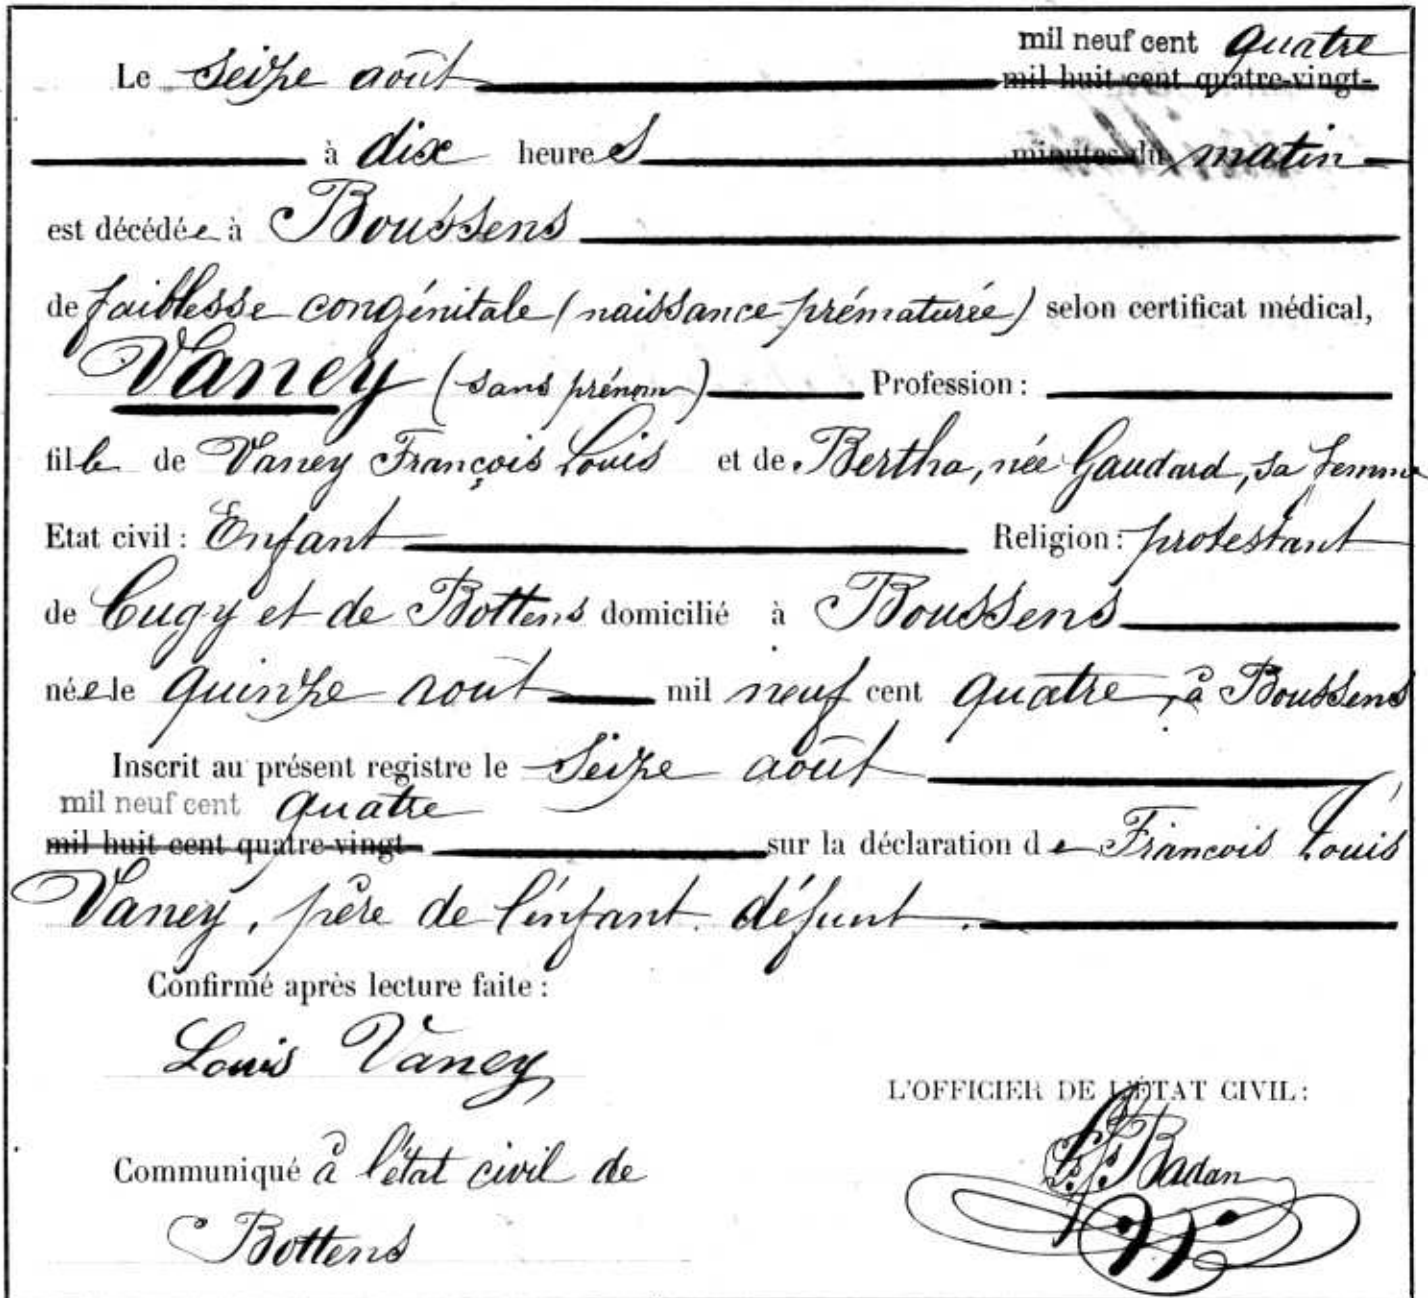 mil neuf cent quatre
Le seize août mil huit cent quatre-vingt-
à dix heures minutes du matin
est décédée à Boussens
de faiblesse congénitale (naissance prématurée) selon certificat médical,
Vaney (sans prénom) Profession :
fille de Vaney François Louis et de Bertha, née Gaudard, sa femme
Etat civil : Enfant Religion : protestant
de Cugy et de Bottens domicilié à Boussens
née le quinze août mil neuf cent quatre, à Boussens
Inscrit au présent registre le seize août
mil neuf cent quatre
mil huit cent quatre-vingt- sur la déclaration de François Louis
Vaney, père de l'enfant défunt.
Confirmé après lecture faite :
Louis Vaney
L'OFFICIER DE L'ÉTAT CIVIL :
Badan
Communiqué à l'état civil de
Bottens